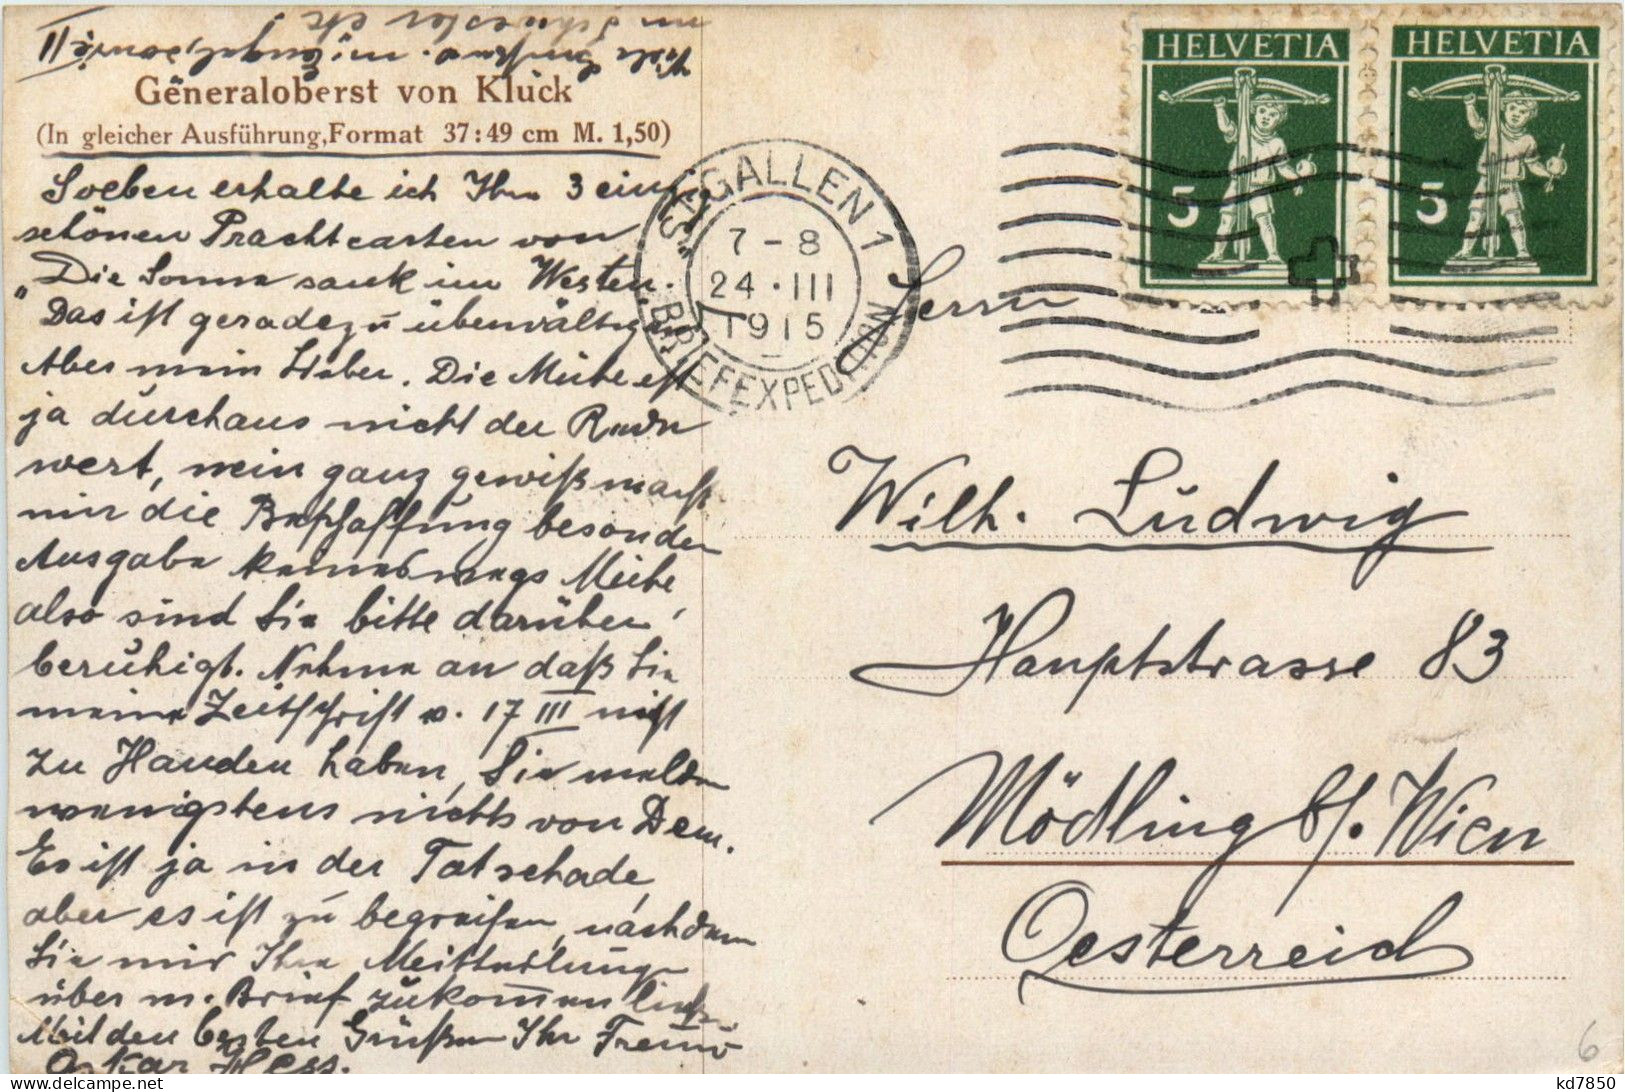 m Schwester etc
Viele
Generaloberst von Kluck
(In gleicher Ausführung, Format 37:49 cm M. 1,50)
Soeben erhalte ich Ihre 3 einzig
schönen Prachtcarten von
"Die Sonne sank im Westen.
Das ist geradezu überwältigend
Aber mein Lieber. Die Mühe ist
ja durchaus nicht der Rede
wert, nein ganz gewiß macht
mir die Beschaffung besonder
Ausgabe keineswegs Mühe,
also sind Sie bitte darüber
beruhigt. Nehme an daß Sie
meine Zeitschrift v. 17 III nicht
zu Handen haben, Sie melden
wenigstens nichts von Dem.
Es ist ja in der Tat schade,
aber es ist zu begreifen, nachdem
Sie mir Ihre Mitteilung
über m. Brief zukommen ließ.
Mit den besten Grüßen Ihr Freund
Oskar Hess.
HELVETIA
5
HELVETIA
5
ST. GALLEN 1
7-8
24·III
1915
BRIEFEXPEDITION
Herrn
Wilh. Ludwig
Hauptstrasse 83
Mödling b/. Wien
Oesterreich
6
kd7850